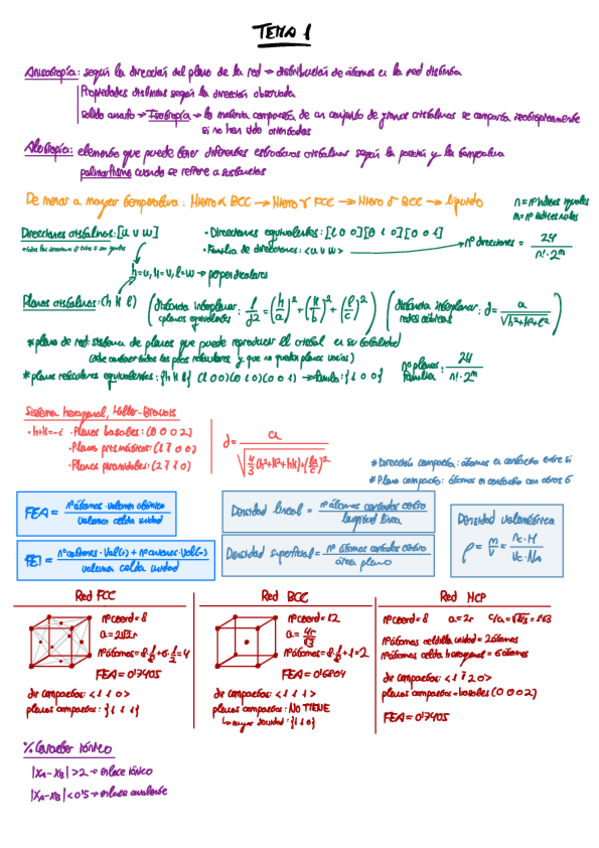 TEMA 1
Anisotropía: según la dirección del plano de la red → distribución de átomos en la red distinta
Propiedades distintas según la dirección observada
Sólido amorfo → Isotropía → la materia compuesta de un conjunto de granos cristalinos se comporta isotrópicamente
si no han sido orientados
Alotropía: elemento que puede tener diferentes estructuras cristalinas según la presión y la temperatura
polimorfismo cuando se refiere a sustancias
De menor a mayor temperatura: Hierro α BCC → Hierro γ FCC → Hierro δ BCC → líquido
n = nº índices iguales
m = nº índices nulos
Direcciones cristalinas: [u v w]
• Direcciones equivalentes: [1 0 0][0 1 0][0 0 1]
• Familia de direcciones: <u v w>
nº direcciones = 24 / n!·2^m
h=u, k=v, l=w → perpendiculares
Planos cristalinos: (h k l)
(distancia interplanar: 1/d² = (h/a)² + (k/b)² + (l/c)²)
planos equivalentes
(distancia interplanar: d = a / √h²+k²+l²)
redes cúbicas
* plano de red: sistema de planos que puede reproducir el cristal en su totalidad
(debe contener todos los puntos reticulares y que no queden planos vacíos)
* planos reticulares equivalentes: {h k l} (1 0 0)(0 1 0)(0 0 1) → familia: {1 0 0}
nº planos familia: 24 / n!·2^m
Sistema hexagonal, Miller-Bravais
• h+k=-i
• Planos basales: (0 0 0 2)
• Planos prismáticos: (1 1̄ 0 0)
• Planos piramidales: (1 1̄ 0)
d = a / √4/3(h²+k²+hk)+(la/c)²
* Dirección compacta: átomos en contacto entre sí
* Plano compacto: átomos en contacto con otros 6
FEA = nº átomos · volumen atómico / volumen celda unidad
FEI = nº cationes · Vol(+) + nº aniones · Vol(-) / volumen celda unidad
Densidad lineal = nº átomos cortados centro / longitud línea
Densidad superficial = nº átomos cortados centro / área plano
Densidad volumétrica
ρ = m/V = nc·M / Vc·NA
Red FCC
nº coord = 8
a = 2√2r
nº átomos = 8·1/8 + 6·1/2 = 4
FEA = 0'7405
dir compactas: <1 1 0>
planos compactos: {1 1 1}
Red BCC
nº coord = 12
a = 4r/√3
nº átomos = 8·1/8 + 1 = 2
FEA = 0'6804
dir compactas: <1 1 1>
planos compactos: NO TIENE
↳ mayor densidad: {1 1 0}
Red HCP
nº coord = 8 a = 2r c/a = √8/3 = 1'63
nº átomos celdilla unidad = 2 átomos
nº átomos celda hexagonal = 6 átomos
dir compactas: <1 1̄ 2 0>
planos compactos = basales (0 0 0 2)
FEA = 0'7405
% Carácter iónico
|XA-XB| > 2 → enlace iónico
|XA-XB| < 0'5 → enlace covalente